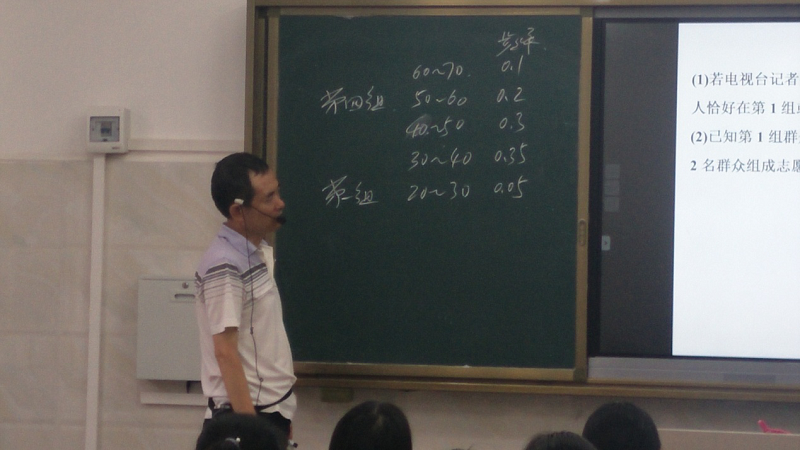 频率
60~70 0.1
第四组 50~60 0.2
40~50 0.3
30~40 0.35
第一组 20~30 0.05
(1)若电视台记者
人恰好在第 1 组
(2)已知第 1 组群
2 名群众组成志愿